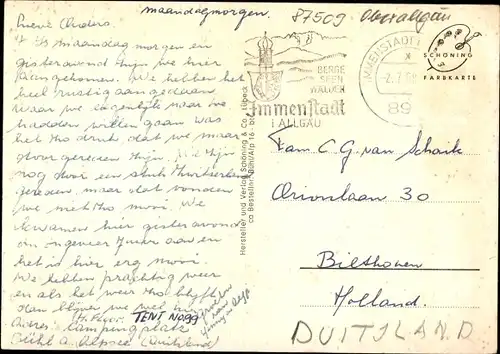 maandagmorgen.
87509 Oberallgäu
Lieve Ouders.
't Is maandagmorgen en
gisteravond zijn we hier
aangekomen. We hebben het
heel rustig aan gedaan
waar we eigenlijk naar toe
hadden willen gaan was
het zo druk dat we maar
door gereden zijn. We zijn
nog door een stuk Zwitserland
gereden, maar dat vonden
we niet zo mooi. We
kwamen hier gisteravond
om ongeveer 7 uur aan en
het is hier erg mooi.
We hebben prachtig weer
en als het weer zo blijft
dan blijven we wel hier
TENT No 99
Adres: Campingplatz
Bühl a. Alpsee (Duitsland)
Hersteller und Verlag Schöning & Co · Lübeck
BERGE
SEEN
WÄLDER
Immenstadt
I. ALLGÄU
IMMENSTADT
89
SCHÖNING
FARBKARTE
Fam C. G. van Schaik
Orionlaan 30
Bilthoven
Holland.
DUITSLAND